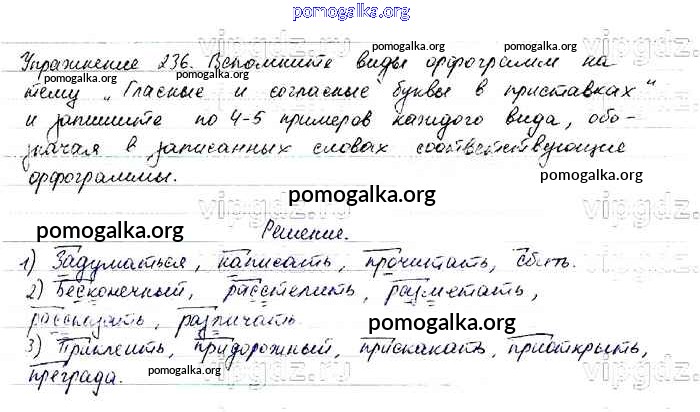 pomogalka.org
Упражнение 236. Вспомните виды орфограмм на
pomogalka.org pomogalka.org
тему „Гласные и согласные буквы в приставках"
pomogalka.org pomogalka.org
и запишите по 4-5 примеров каждого вида, обо-
значая в записанных словах соответствующие
орфограммы.
pomogalka.org
pomogalka.org
vipgdz.ru
pomogalka.org Решение. pomogalka.org
1) Задуматься, написать, прочитать, сбить.
2) Бесконечный, расстелить, разметать,
рассказать, различать.
pomogalka.org
3) Приклеить, придорожный, прискакать, приоткрыть,
преграда.
pomogalka.org